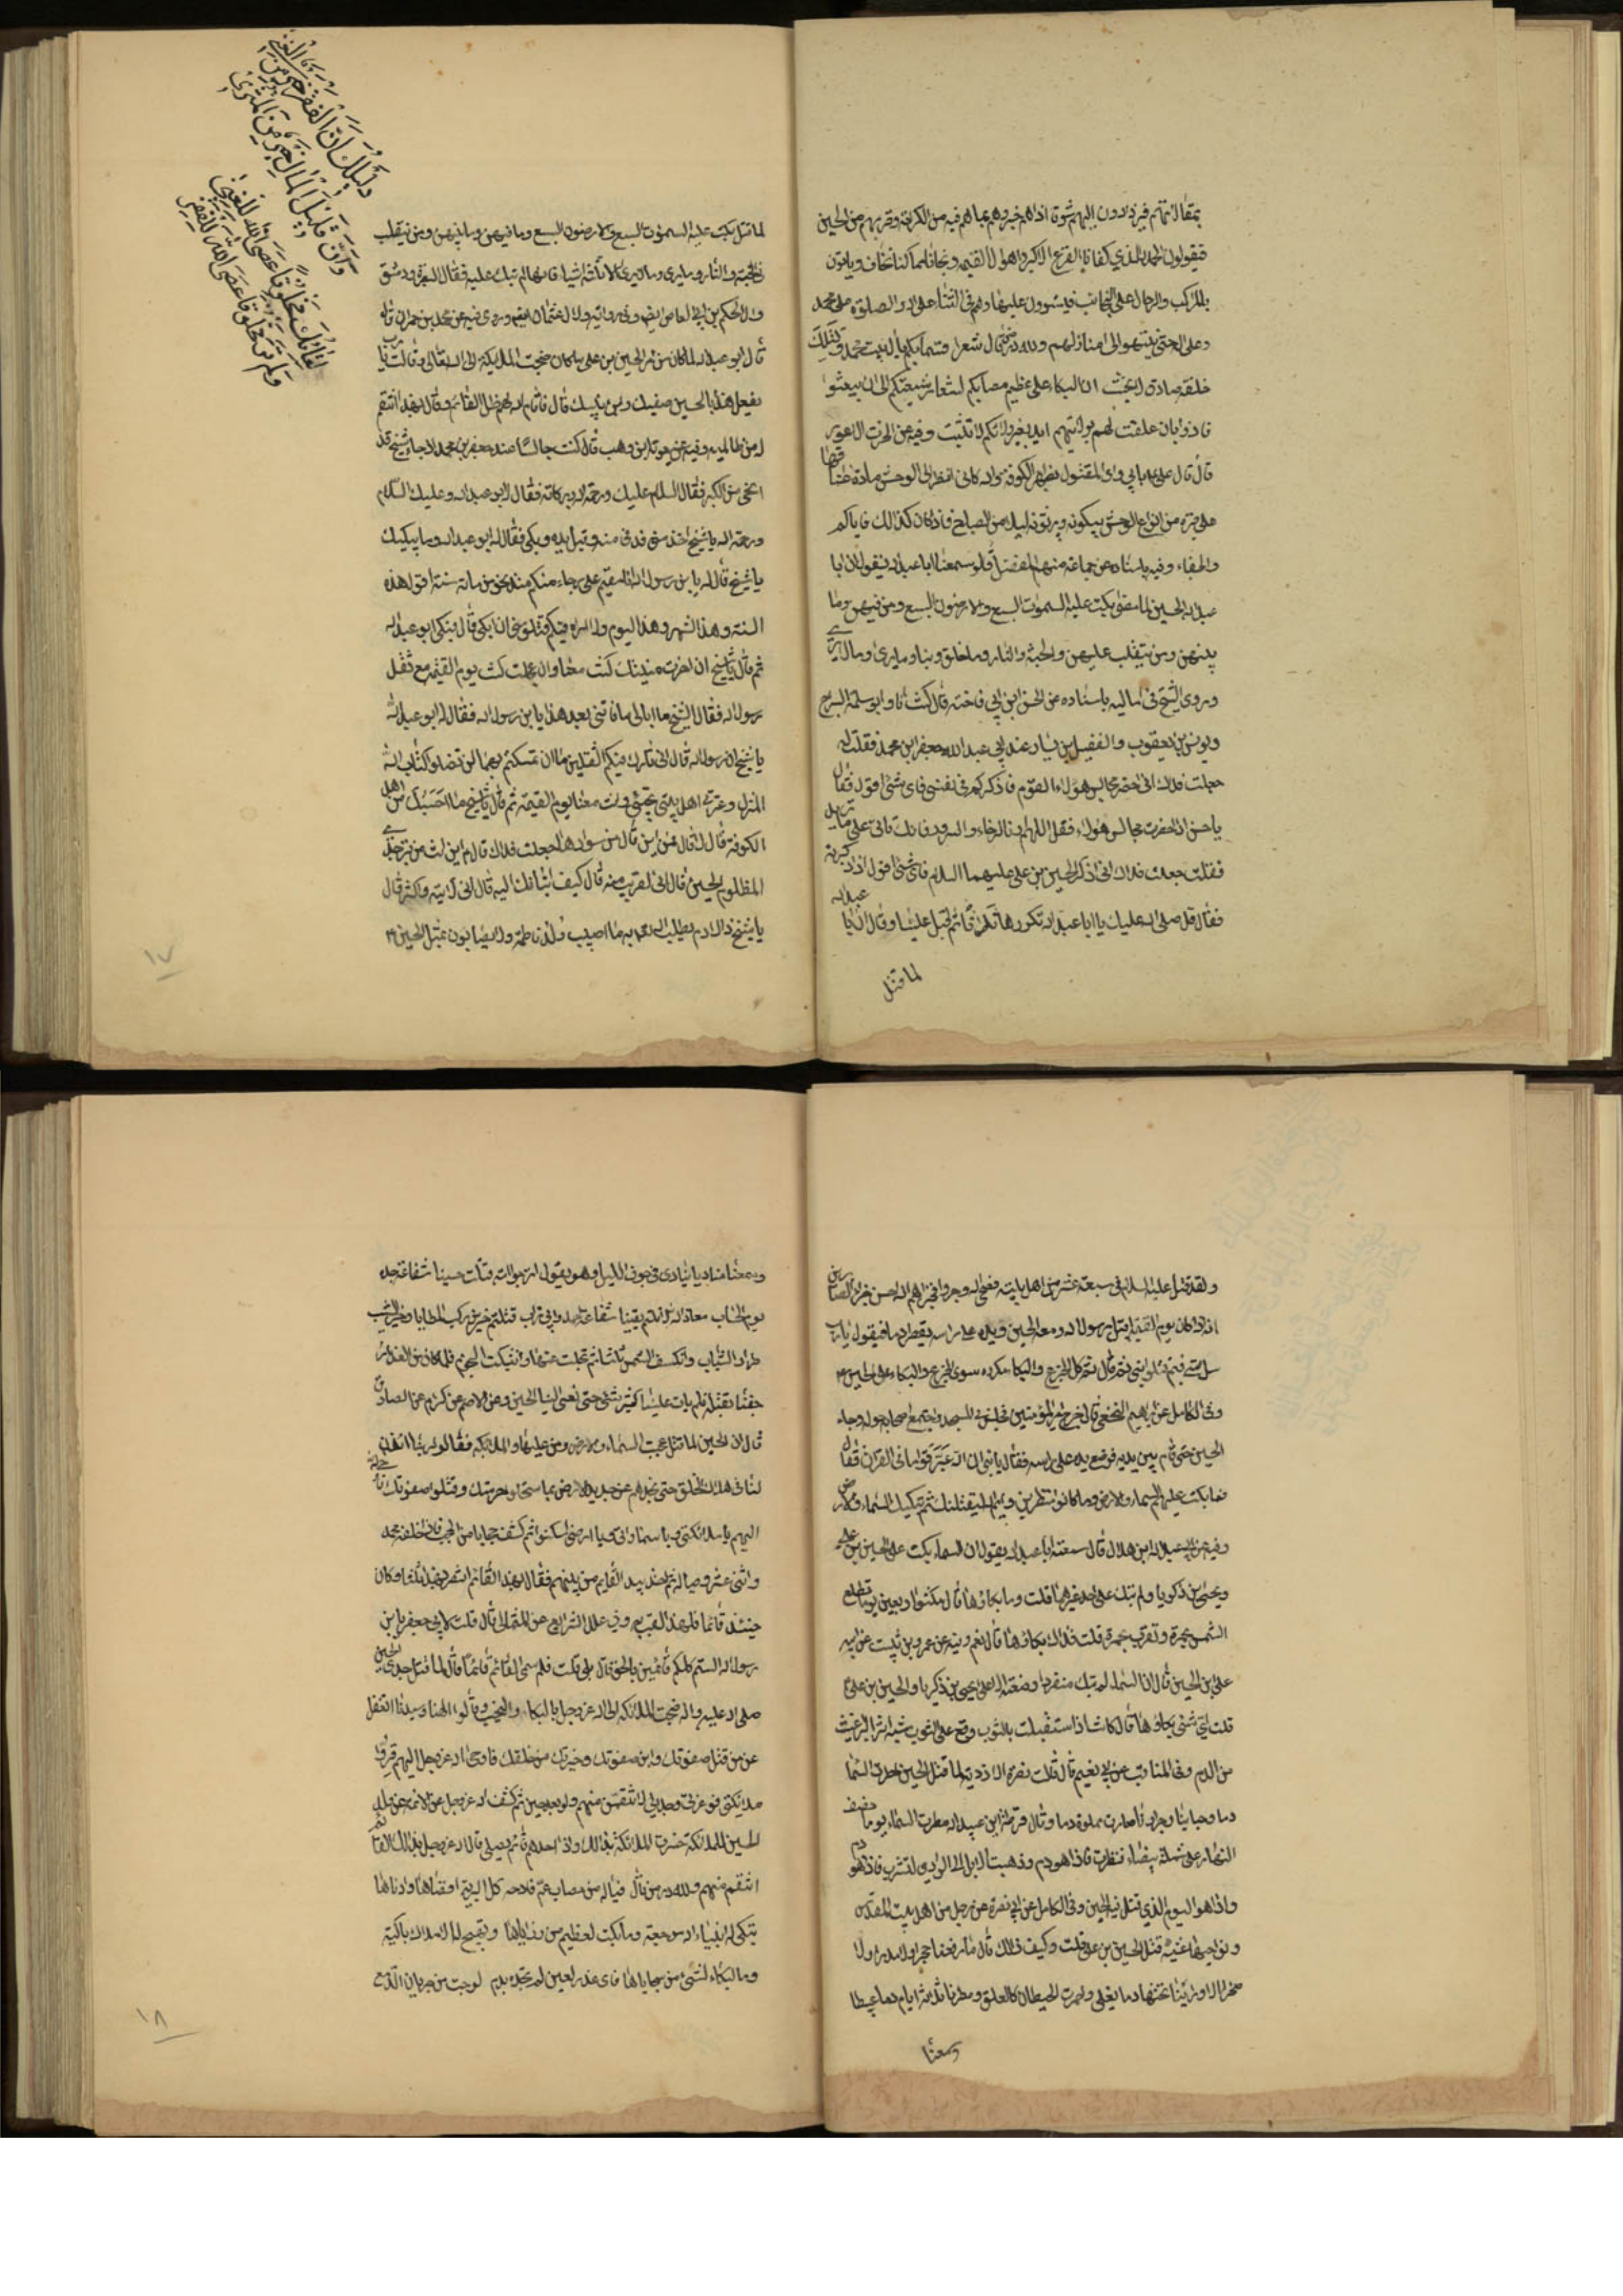 بمقالاتهم فيزدادون اليهم شوقا اذا هم خبروهم بما هم فيه من الكرامة وقربهم من الحسين
فيقولون الحمد لله الذي كفانا الفزع الاكبر واهوال القيمه ونجانا مما كنا نخاف ويؤتون
بالمراكب والرحال على النجائب فيستوون عليها وهم في الثناء على الله والصلوة على محمد
وعلى اله حتى ينتهوا الى منازلهم ولله در من قال شعرا
خلقه صادق ان البكاء على عظيم مصابكم لشعار شيعتكم الى ان يبعثوا
فاذا بان علقت لهم بولائهم وفيه عن الحرث الاعور
قال قال علي بابي وامي المقتول بظهر الكوفة والله كاني انظر الى الوحش مادة اعناقها
على قبره من انواع الوحش يبكونه ويرثونه ليلا من الصباح فاذا كان كذالك فاياكم
والجفاء وفيه باسناده عن جماعة منهم المفضل قالو سمعنا ابا عبد الله يقول ان ابا
عبد الله الحسين لما مضى بكت عليه السموات السبع والارضون السبع ومن فيهن وما
بينهن ومن يتقلب عليهن والجنة والنار وما خلق ربنا وما يرى وما لا يرى
وروى الشيخ في اماليه باسناده عن الحسن ابن ابي فاخته قال كنت انا وابو سلمة السراج
ويونس بن يعقوب والفضيل بن يسار عند ابي عبد الله جعفر ابن محمد فقلت له
جعلت فداك اني احضر مجالس هؤلاء القوم فاذكركم في نفسي فاي شئ اقول فقال
ياحسن اذا حضرت مجالس هؤلاء فقل اللهم ارنا الرخاء والسرور فانك تاتى على ما تريد
فقلت جعلت فداك اني اذكر الحسين بن علي عليهما السلام فاي شئ اقول اذا ذكرته
فقال قل صلى الله عليك يا ابا عبد الله تكررها ثلاثا ثم اقبل علينا وقال ان ابا عبد الله
لما قتل
لما قتل بكت عليه السموات السبع والارضون السبع وما فيهن وما بينهن ومن يتقلب
في الجنة والنار وما يرى وما لا يرى الا ثلاثة اشياء فانها لم تبك عليه فقال البصرة ودمشق
وال الحكم بن ابي العاص وروى فيه عن محمد بن حمران قال
قال ابو عبد الله لما كان من امر الحسين بن علي ما كان ضجت الملايكة الى الله تعالى وقالت يا رب
يفعل هذا بالحسين صفيك وابن نبيك قال فاقام الله لهم ظل القائم وقال بهذا انتقم
له من ظالميه وفيه عن معوية بن وهب قال كنت جالسا عند جعفر بن محمد اذ جاء شيخ قد
انحنى من الكبر فقال السلام عليك ورحمة الله وبركاته فقال ابو عبد الله وعليك السلام
ورحمة الله يا شيخ ادن مني فدنى منه وقبل يده وبكى فقال له ابو عبد الله وما يبكيك
يا شيخ قال له يابن رسول الله انا مقيم على رجاء منكم منذ نحو من مائة سنة اقول هذه
السنة وهذا الشهر وهذا اليوم ولا اراه فيكم فتلومني ان ابكي قال فبكى ابو عبد الله
ثم قال يا شيخ ان اخرت منيتك كنت معنا وان عجلت كنت يوم القيمة مع ثقل
رسول الله فقال الشيخ ما ابالي ما فاتني بعد هذا يا بن رسول الله فقال له ابو عبد الله
يا شيخ ان رسول الله قال اني تارك فيكم الثقلين ما ان تمسكتم بهما لن تضلو كتاب الله
المنزل وعترتي اهل بيتي تجئ وانت معنا يوم القيمة ثم قال يا شيخ ما احسبك من اهل
الكوفة قال لا قال فمن اين قال من سوادها جعلت فداك قال اين انت من قبر جدي
المظلوم الحسين قال اني لقريب منه قال كيف اتيانك اليه قال اني لاتيه واكثر قال
يا شيخ ذاك دم يطلب الله به ما اصيب ولد فاطمة ولا يصابون بمثل الحسين
دليلك ان الفقر خير من الغنى
وان قليل المال خير من المثري
لقاؤك مخلوقا عصى الله للغنى
ولم تر مخلوقا عصى الله للفقر
١٧
ولقد قتل عليه السلام في سبعة عشر من اهل بيته نصحوا لله وصبروا فجزاهم الله احسن جزاء الصابرين
اذا كان يوم القيمة اقبل رسول الله ومعه الحسين ويده على راسه يقطر دما فيقول يا رب
سل امتي فيم قتلو ابني ثم قال كل الجزع والبكاء مكروه سوى الجزع والبكاء على الحسين
وفي الكامل عن ابراهيم النخعي قال خرج امير المؤمنين فجلس في المسجد واجتمع اصحابه حوله وجاء
الحسين حتى قام بين يديه فوضع يده على راسه فقال يا بني ان الله عير قوما في القران فقال
فما بكت عليهم السماء والارض وما كانوا منظرين وايم الله ليقتلنك ثم تبكيك السماء والارض
وفيه عن عبد الله ابن هلال قال سمعت ابا عبد الله يقول ان السماء بكت على الحسين بن علي
ويحيى ابن زكريا ولم تبك على احد غيرهما قلت وما بكاؤها قال مكثوا اربعين يوما تطلع
الشمس بحمرة وتغرب بحمرة قلت فذاك بكاؤها قال نعم وفيه عن عمرو بن ثبيت عن ابيه
علي بن الحسين قال ان السماء لم تبك منذ وضعت الا على يحيى بن زكريا والحسين بن علي
قلت اي شئ بكاؤها قال كانت اذا استقبلت بالثوب وقع على الثوب شبه اثر البراغيث
من الدم وفي المناقب عن ابي نعيم قال قالت نضرة الازدية لما قتل الحسين امطرت السماء
دما وحبابنا وجرارنا صارت مملوة دما وقال قرظة ابن عبيد الله مطرت السماء يوما نصف
النهار على شملة بيضاء فنظرت فاذا هو دم وذهبت الابل الى الوادي لتشرب فاذا هو دم
واذا هو اليوم الذي قتل فيه الحسين وفي الكامل عن ابي نصر عن رجل من اهل بيت المقدس
ونواحيها عشية قتل الحسين بن علي قلت وكيف ذالك قال ما رفعنا حجرا ولا مدرا ولا
صخرا الا وراينا تحتها دما يغلي واحمرت الحيطان كالعلق ومطرنا ثلاثة ايام دما عبيطا
وسمعنا
وسمعنا مناديا ينادي في جوف الليل وهو يقول اترجوا امة قتلت حسينا شفاعة جده
يوم الحساب معاذ الله لا نلتم يقينا شفاعة احمد وابي تراب قتلتم خير من ركب المطايا وخير الشيب
طرا والشباب وانكسفت الشمس ثلاثا ثم تجلت عنها وانشبكت النجوم فلما كان من الغد
ارجفنا بقتله فلم يات علينا كثير شئ حتى نعي الينا الحسين وعن الاصم عن كرام عن الصادق
قال ان الحسين لما قتل عجت السماء والارض ومن عليها والملائكة فقالوا يا ربنا ائذن
لنا في هلاك الخلق حتى نجدهم عن جديد الارض بما استحلوا حرمتك وقتلوا صفوتك فاوحى الله
اليهم يا ملائكتي ويا سمائي ويا ارضي اسكنوا ثم كشف حجابا من الحجب فاذا خلفه محمد
واثنى عشر وصيا له ثم اخذ بيد القايم من بينهم فقال بهذا القائم انتصر لهذا ثلاثا وكان
حينئذ قائما فلهذا لقب به وفي علل الشرايع عن الثمالي قال قلت لابي جعفر يابن
رسول الله الستم كلكم قائمين بالحق قال بلى قلت فلم سمى القائم قائما قال لما قتل جدي الحسين
صلى الله عليه واله ضجت الملائكه الى الله عز وجل بالبكاء والنحيب وقالوا الهنا وسيدنا اتغفل
عن من قتل صفوتك وابن صفوتك وخيرتك من خلقك فاوحى الله عز وجل اليهم قروا
ملائكتي فوعزتي وجلالي لانتقمن منهم ولو بعد حين ثم كشف الله عز وجل عن الائمة من ولد
الحسين للملائكة فسرت الملائكة بذالك واذا احدهم قائم يصلي فقال الله عز وجل بذالك القائم
انتقم منهم ولله در من قال فياله من مصاب عم فادحه كل البرية اقصاها وادناها
يبكي له انبياء الله موجعة وما بكت لعظيم من رزاياها وتصبح الاملاك باكية
وما البكاء لشئ من سجاياها فاي عذر لعين لم تجد بدم لو جف من جريان الدمع
١٨